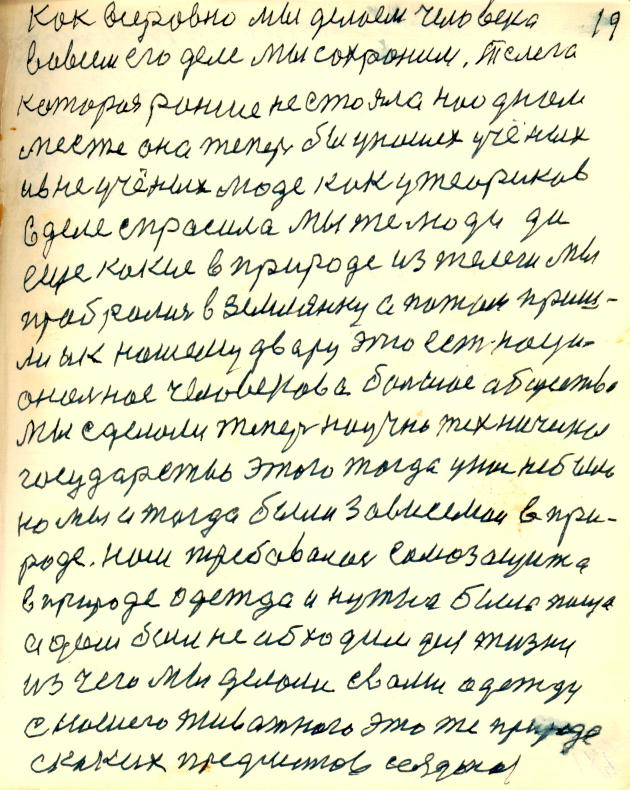 19
Как всеровно мы делаем человека
вовсем его деле мы сохроним. Телега
которая раньше нестояла нао дном
месте она тепер бы унаших учёных
ивнеучёных моде как утеориков
в деле спрасила мы же люди да
еще какие в природе из телеги мы
пробролия в землянку а потом приш-
ли ык нашему двару это ест наци-
оналное человекова болшое абщество
мы сделали тепер научно техничиское
государство этого тогда унас небыло
но мы и тогда были зависемаи в при-
роде. нам требовалос самозащита
в природе одежда и нужна была пища
а дом были не абходим для жизни
из чего мы делали сваю одежду
с нашего живатного это же природе
скаких предметов